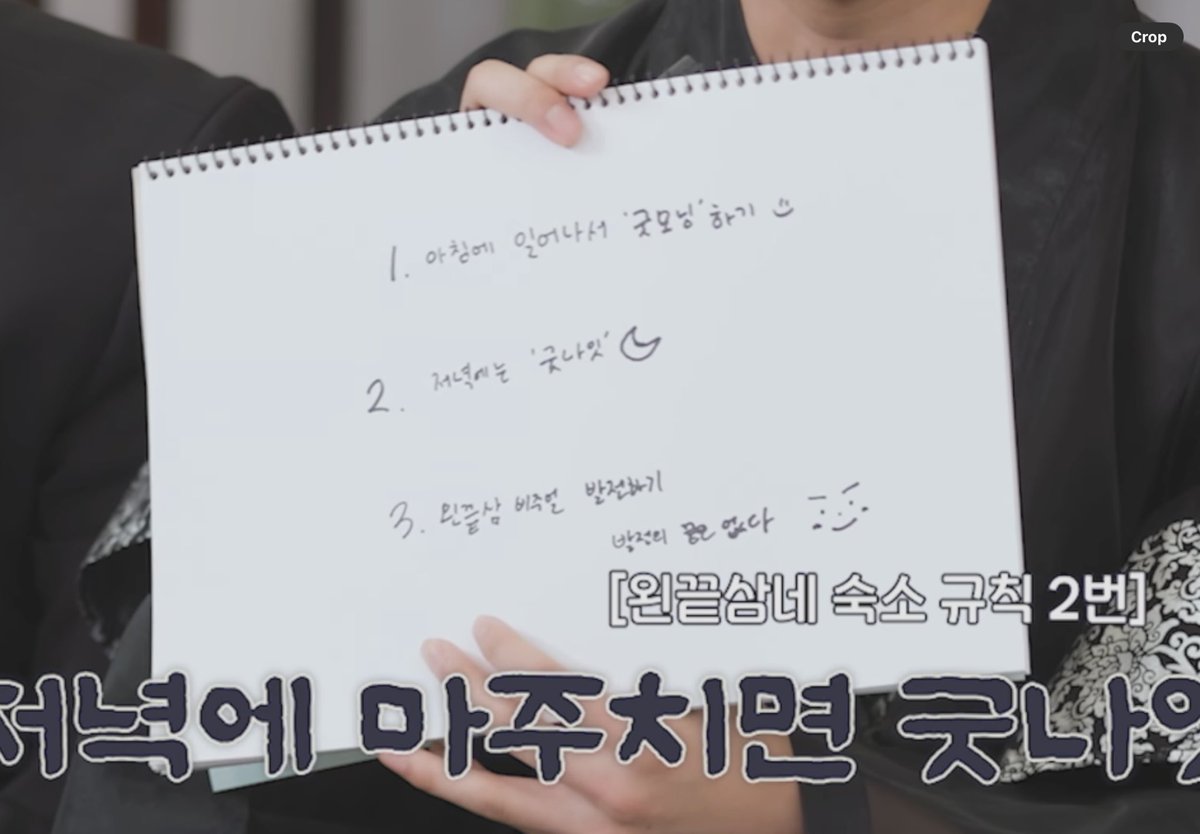 Crop
1. 아침에 일어나서 '굿모닝' 하기
2. 저녁에는 '굿나잇'
3. 왼끝삼 비주얼 발전하기
발전의 끝은 없다
[왼끝삼네 숙소 규칙 2번]
저녁에 마주치면 굿나잇